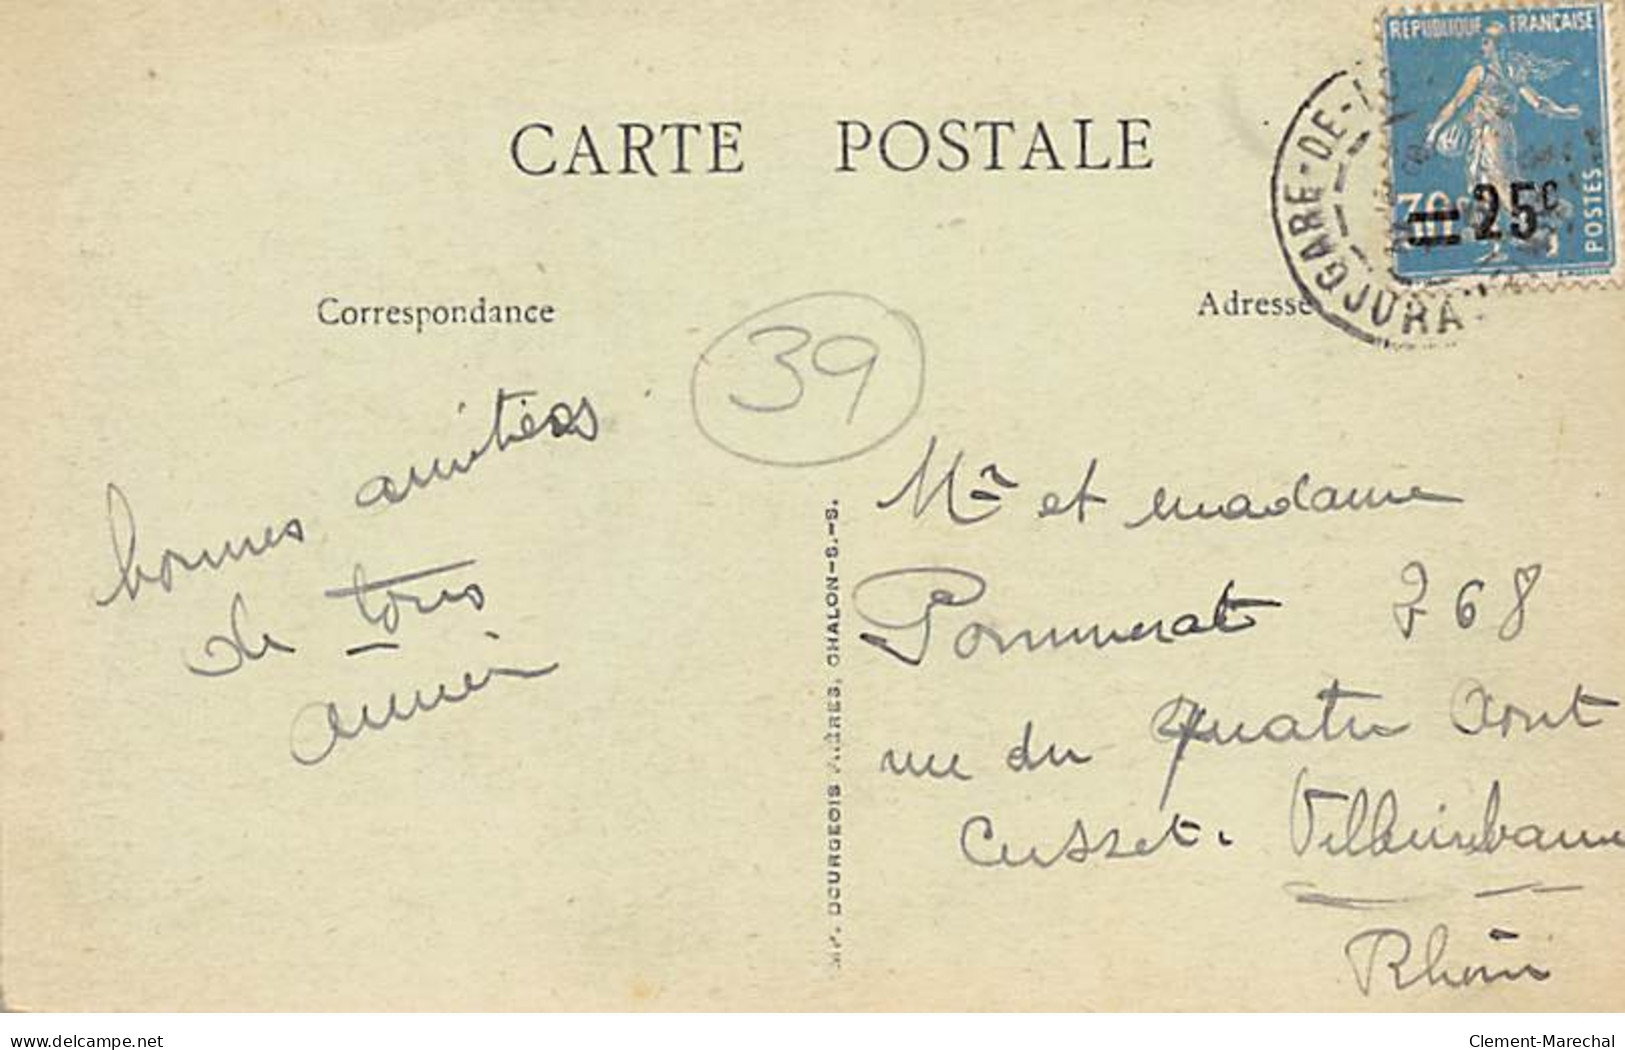 CARTE POSTALE
REPUBLIQUE FRANÇAISE
POSTES
30c
25c
GARE-DE-
JURA
Correspondance
Adresse
39
bonnes amitiés
de tous
IMP. BOURGEOIS FRÈRES, CHALON-S.-S.
Mr et madame
Pommerat 268
rue du quatre Aout
Cusset. Villeurbanne
Rhône
www.delcampe.net
Clement-Marechal